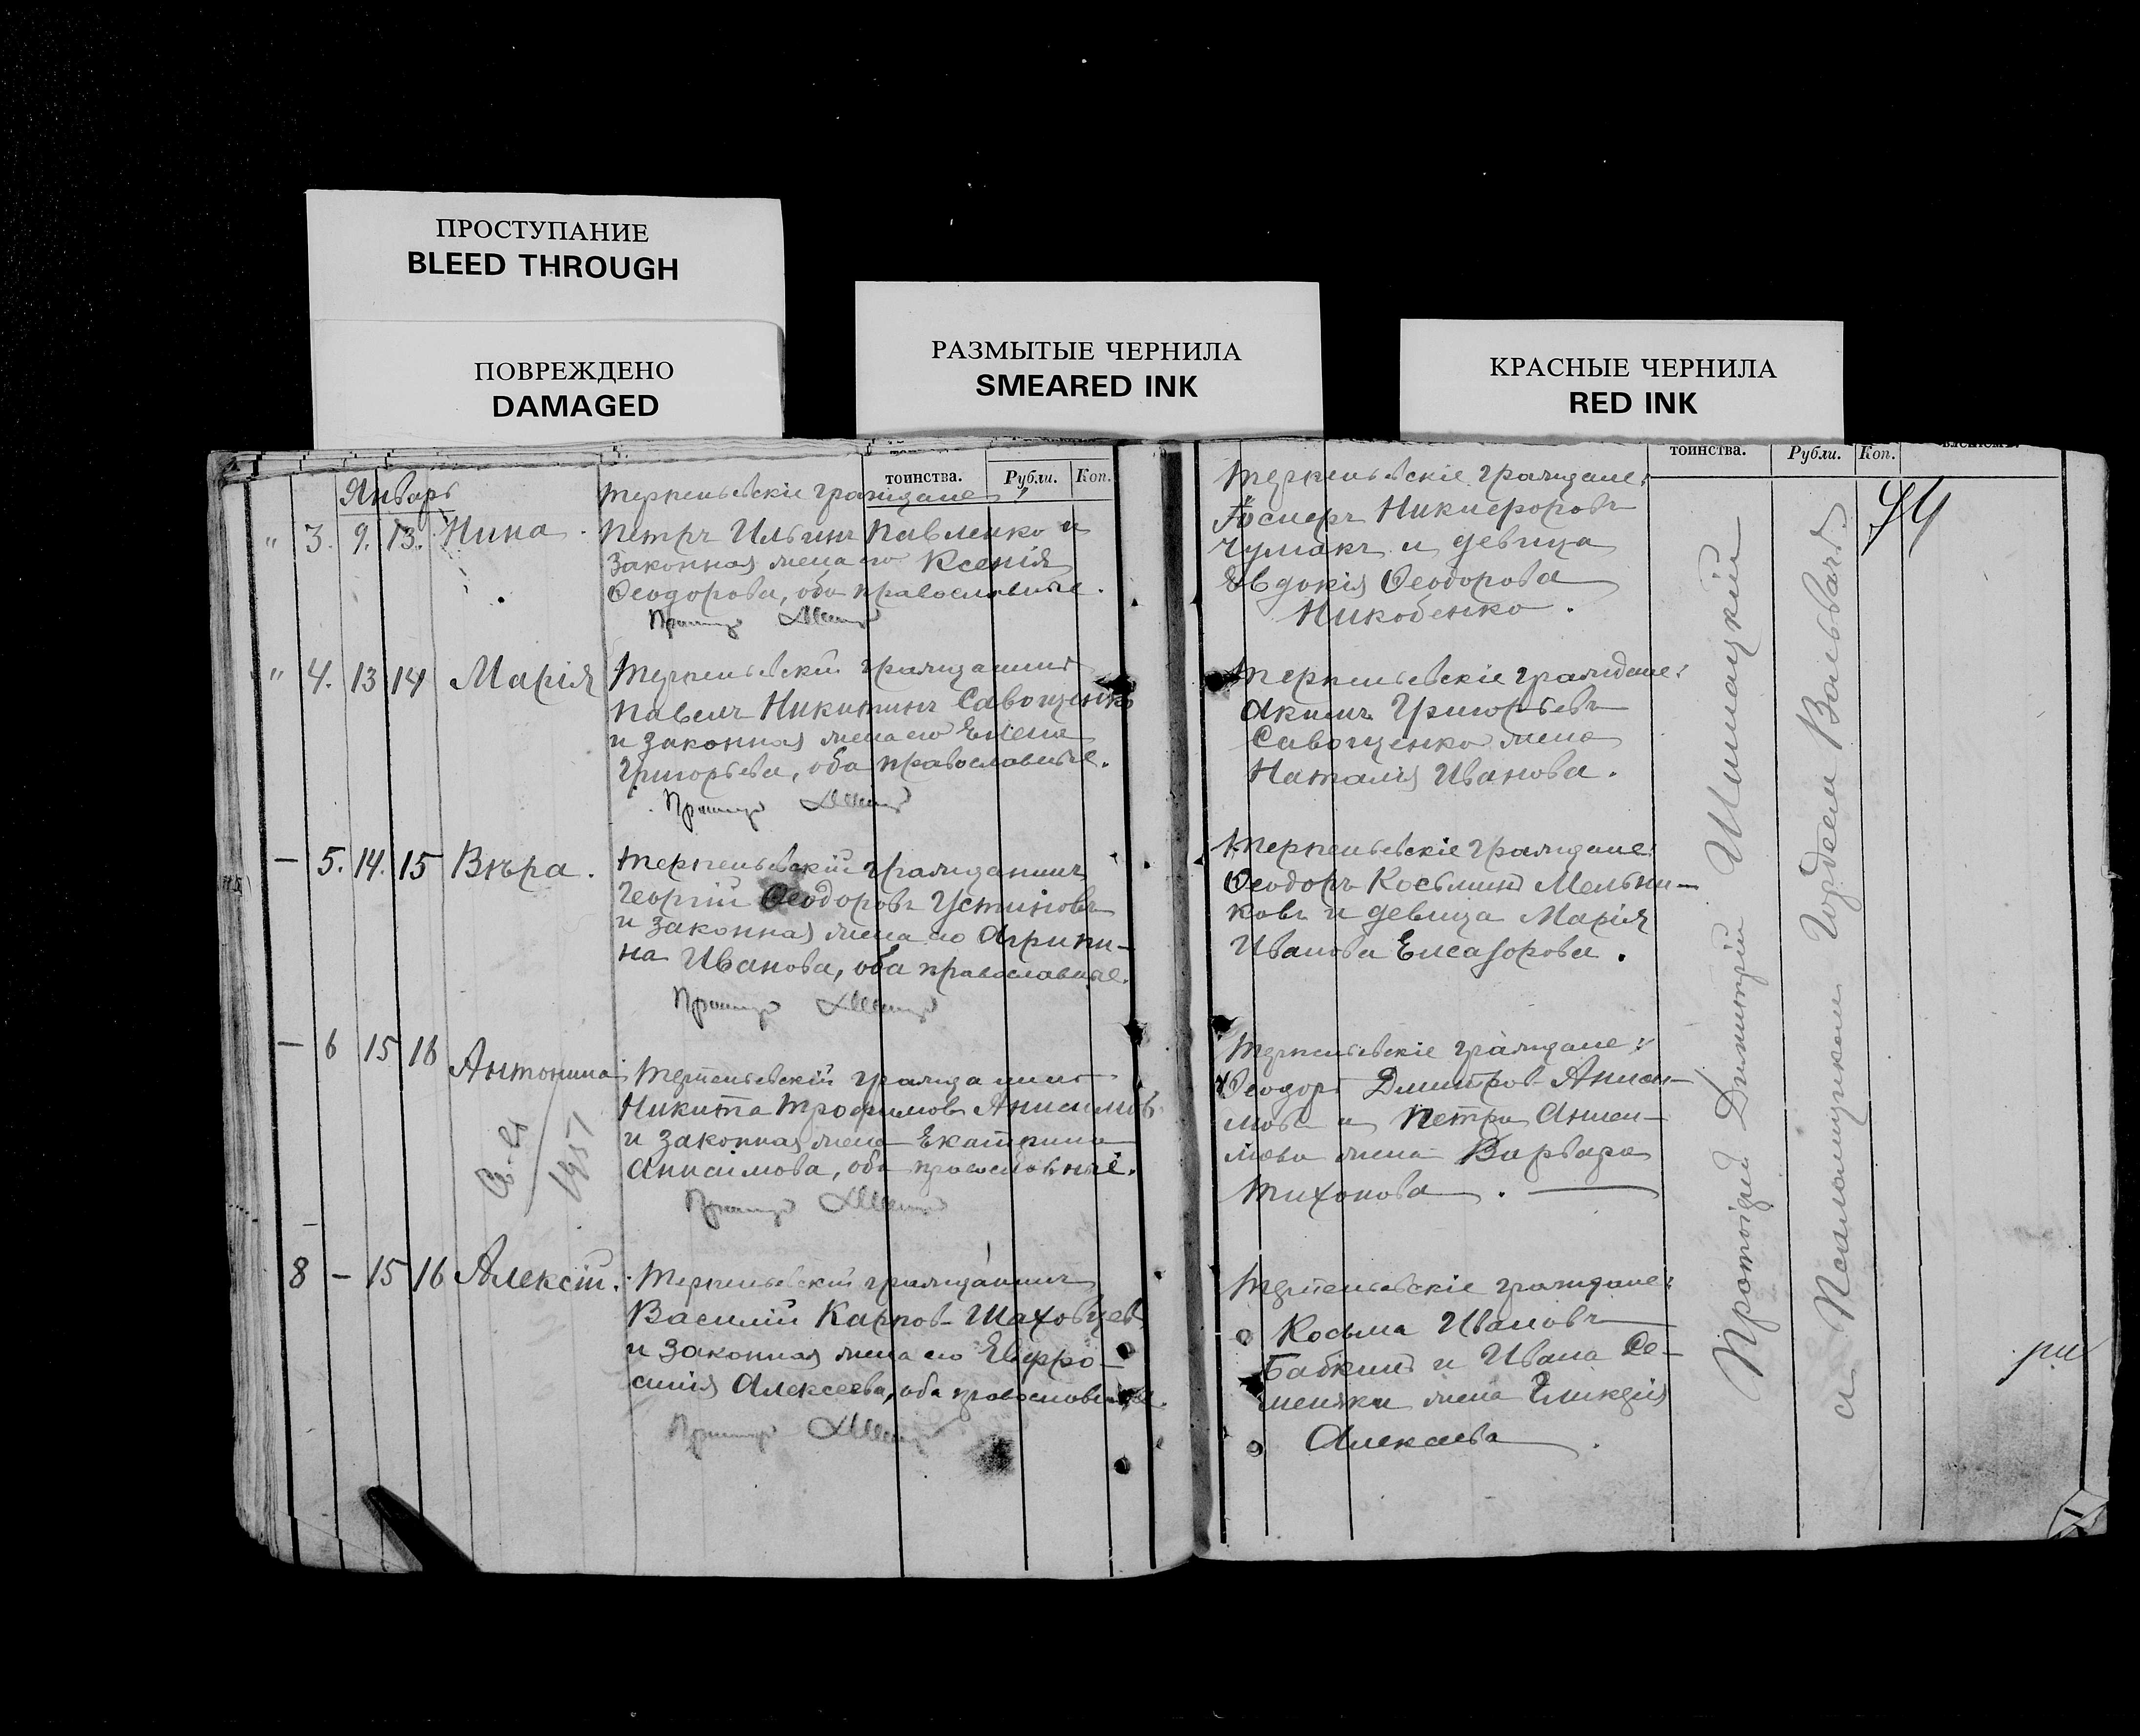 ПРОСТУПАНИЕ
BLEED THROUGH
ПОВРЕЖДЕНО
DAMAGED
РАЗМЫТЫЕ ЧЕРНИЛА
SMEARED INK
КРАСНЫЕ ЧЕРНИЛА
RED INK
тоинства. Рубли. Коп.
Январь
Терпеньевскіе граждане
" 3. 9. 13. Нина.
Петръ Ильинъ Павленко и
законная жена его Ксенія
Ѳеодорова, оба православные.
" 4. 13 14 Марія
Терпеньевскій гражданинъ
Павелъ Никитинъ Савощенко
и законная жена его Елена
Григорьева, оба православные.
— 5. 14. 15 Вѣра.
Терпеньевскій гражданинъ
Георгій Ѳеодоровъ Устиновъ
и законная жена его Агрипи-
на Иванова, оба православные.
— 6 15 16 Антонина
Терпеньевскій гражданинъ
Никита Трофимовъ Анисимовъ
и законная жена Екатерина
Анисимова, оба православные.
1951
8 — 15 16 Алексій.
Терпеньевскій гражданинъ
Василій Карповъ Шаховцевъ
и законная жена его Евфро-
синія Алексеева, оба православные.
тоинства. Рубли. Коп.
94
Терпеньевскіе граждане:
Никифоровъ
Чумакъ и девица
Евдокія Ѳеодорова
Никобенко.
Терпеньевскіе граждане:
Акимъ Григорьевъ
Савощенко жена
Наталія Иванова.
Терпеньевскіе граждане:
Ѳеодоръ Косьминъ Мельни-
ковъ и девица Марія
Иванова Елеазорова.
Терпеньевскіе граждане:
Ѳеодоръ Димитровъ Аниси-
мовъ и Петра Аниси-
мова жена Варвара
Тихонова.
Терпеньевскіе граждане:
Косьма Ивановъ
Бабкинъ и Ивана Се-
меняки жена Гликерія
Алексеева
Протоіерей Димитрій
съ Псаломщикомъ